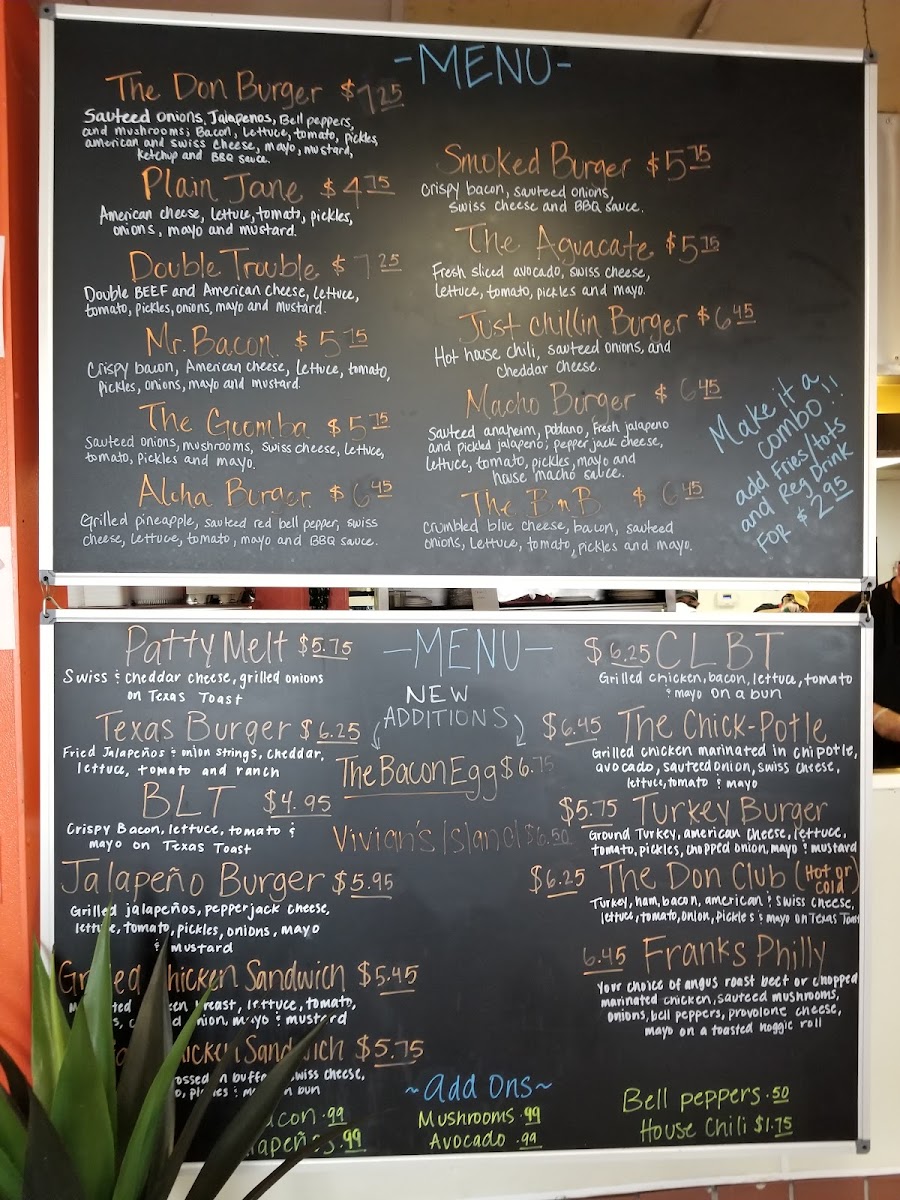 -MENU-
The Don Burger $7.25
Sauteed onions, Jalapenos, Bell peppers,
and mushrooms; Bacon, Lettuce, tomato, pickles,
american and swiss cheese, mayo, mustard,
ketchup and BBQ sauce.
Plain Jane $4.75
American cheese, lettuce, tomato, pickles,
onions, mayo and mustard.
Double Trouble $7.25
Double BEEF and American cheese, lettuce,
tomato, pickles, onions, mayo and mustard.
Mr. Bacon $5.75
Crispy bacon, American cheese, Lettuce, tomato,
pickles, onions, mayo and mustard.
The Goomba $5.75
Sauteed onions, mushrooms, swiss cheese, lettuce,
tomato, pickles and mayo.
Aloha Burger $6.45
Grilled pineapple, sauteed red bell pepper, swiss
cheese, lettuce, tomato, mayo and BBQ sauce.
Smoked Burger $5.75
Crispy bacon, sauteed onions,
Swiss cheese and BBQ sauce.
The Aguacate $5.75
Fresh sliced avocado, swiss cheese,
lettuce, tomato, pickles and mayo.
Just chillin Burger $6.45
Hot house chili, sauteed onions, and
cheddar cheese.
Macho Burger $6.45
Sauteed anaheim, poblano, fresh jalapeno
and pickled jalapeno, pepper jack cheese,
lettuce, tomato, pickles, mayo and
house macho sauce.
The BnB $6.45
Crumbled blue cheese, bacon, sauteed
onions, Lettuce, tomato, pickles and mayo.
Make it a
combo!!
add Fries/tots
and Reg Drink
FOR $2.95
-MENU-
NEW
ADDITIONS
The Bacon Egg $6.75
Vivian's Island $6.50
Patty Melt $5.75
Swiss & cheddar cheese, grilled onions
on Texas Toast
Texas Burger $6.25
Fried Jalapeños & onion strings, cheddar,
lettuce, tomato and ranch
BLT $4.95
Crispy Bacon, lettuce, tomato &
mayo on Texas Toast
Jalapeño Burger $5.95
Grilled jalapeños, pepperjack cheese,
tomato, pickles, onions, mayo
& mustard
Chicken Sandwich $5.45
breast, lettuce, tomato,
onion, mayo & mustard
Sandwich $5.75
swiss cheese,
bun
$6.25 CLBT
Grilled chicken, bacon, lettuce, tomato
& mayo on a bun
$6.45 The Chick-Potle
Grilled chicken marinated in chipotle,
avocado, sauteed onion, swiss cheese,
lettuce, tomato & mayo
$5.75 Turkey Burger
Ground Turkey, american cheese, lettuce,
tomato, pickles, chopped onion, mayo & mustard
$6.25 The Don Club (Hot or cold)
Turkey, ham, bacon, american & swiss cheese,
lettuce, tomato, onion, pickles & mayo on Texas Toast
6.45 Franks Philly
Your choice of angus roast beef or chopped
marinated chicken, sauteed mushrooms,
onions, bell peppers, provolone cheese,
mayo on a toasted hoggie roll
~Add Ons~
.99
.99
Mushrooms .99
Avocado .99
Bell peppers .50
House Chili $1.75